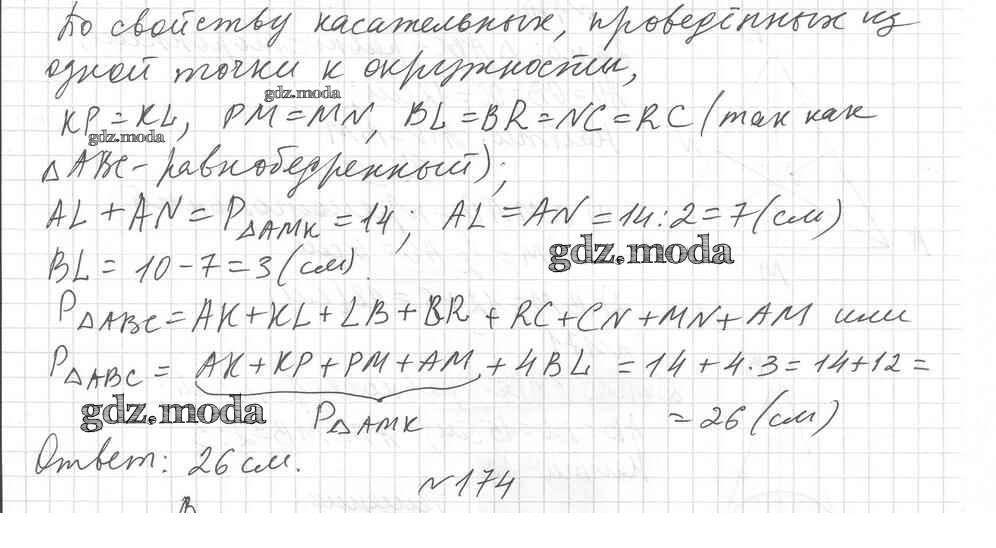 По свойству касательных, проведённых из
одной точки к окружности,
gdz.moda
KP=KL, PM=MN, BL=BR=NC=RC (так как
gdz.moda
△ABC - равнобедренный);
AL+AN=P△AMK=14; AL=AN=14:2=7(см)
gdz.moda
BL=10-7=3(см).
P△ABC=AK+KL+LB+BR+RC+CN+MN+AM или
P△ABC= AK+KP+PM+AM +4BL =14+4·3=14+12=
gdz.moda
P△AMK =26(см)
Ответ: 26 см.
№174
B